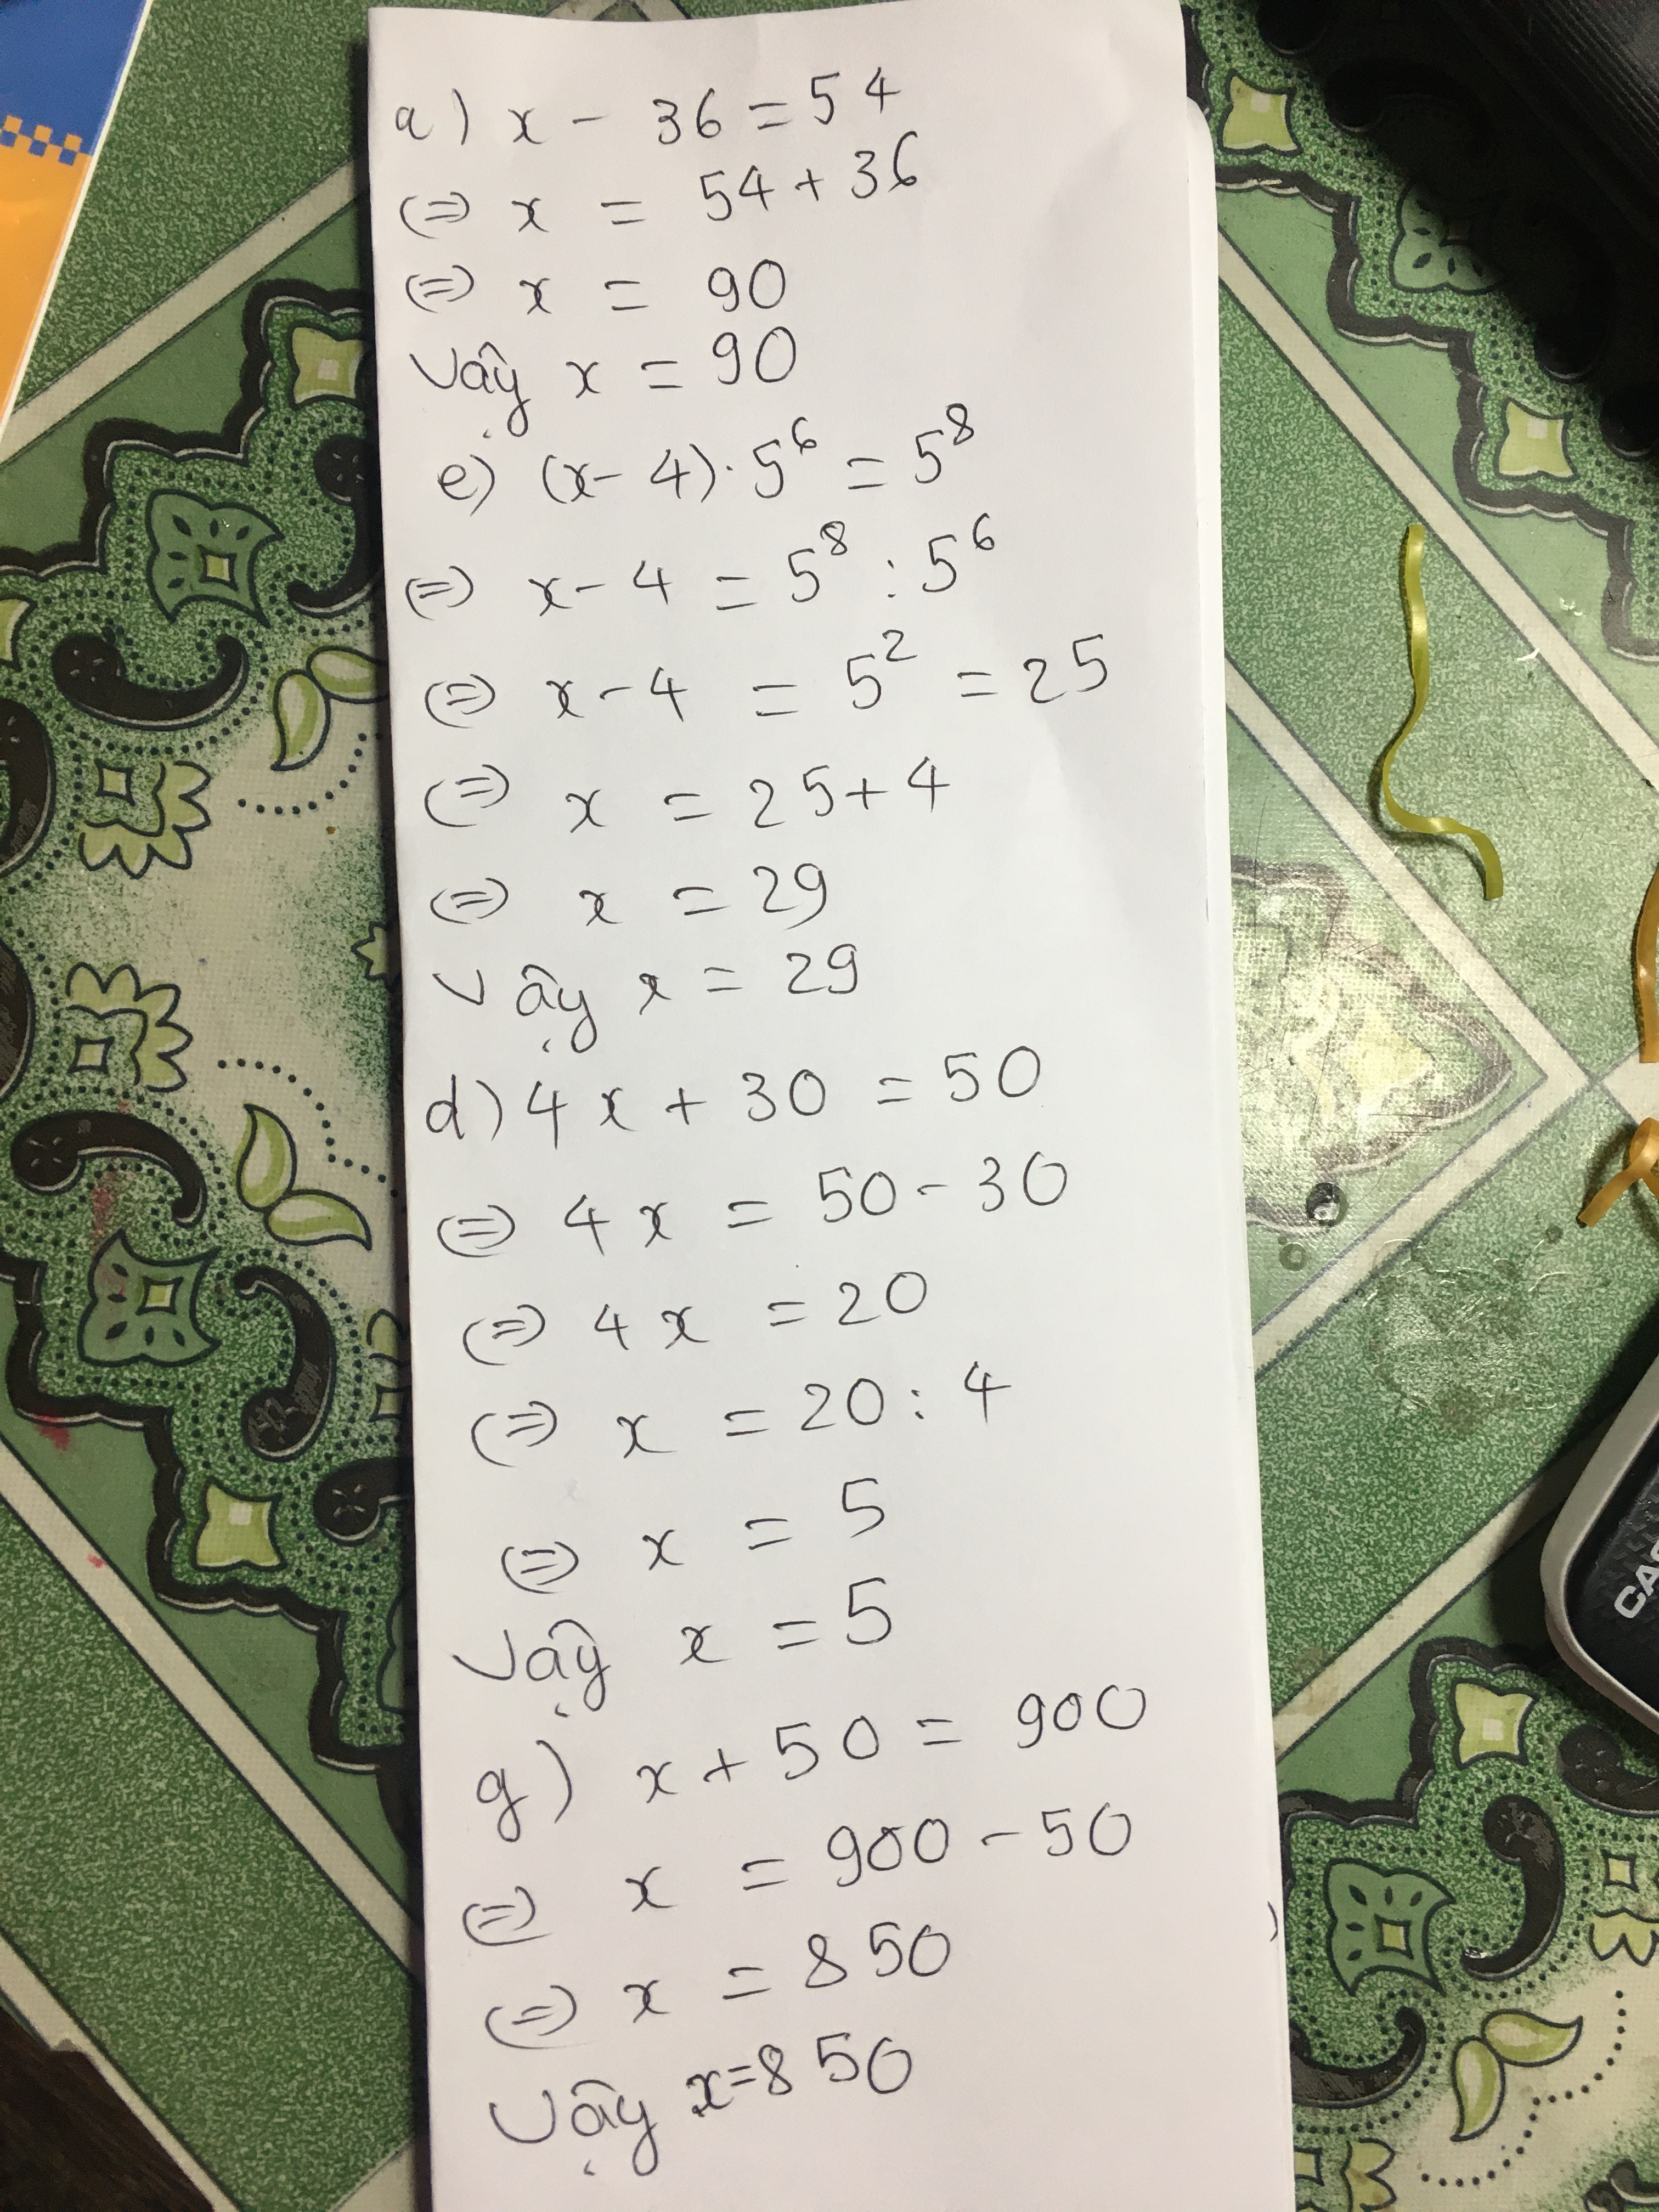 a) x - 36 = 54
(=) x = 54 + 36
(=) x = 90
Vậy x = 90
e) (x - 4) . 5⁶ = 5⁸
(=) x - 4 = 5⁸ : 5⁶
(=) x - 4 = 5² = 25
(=) x = 25 + 4
(=) x = 29
Vậy x = 29
d) 4x + 30 = 50
(=) 4x = 50 - 30
(=) 4x = 20
(=) x = 20 : 4
(=) x = 5
Vậy x = 5
g) x + 50 = 900
(=) x = 900 - 50
(=) x = 850
Vậy x = 850